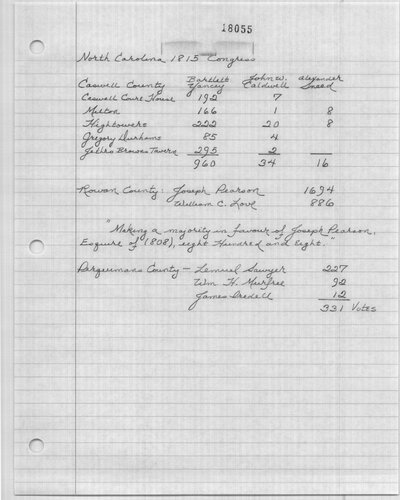 18055
North Carolina 1815 Congress
Caswell County Bartlett Yancey John W. Caldwell Alexander Sneed
Caswell Court House 192 7
Milton 166 1 8
Hightowers 222 20 8
Gregory Durhams 85 4
Jethro Browns Tavern 295 2
960 34 16
Rowan County: Joseph Pearson 1694
William C. Love 886
"Making a majority in favour of Joseph Pearson,
Esquire of 1808), eight Hundred and eight."
Perquimans County - Lemuel Sawyer 227
Wm H. Murfree 92
James Iredell 12
331 Votes